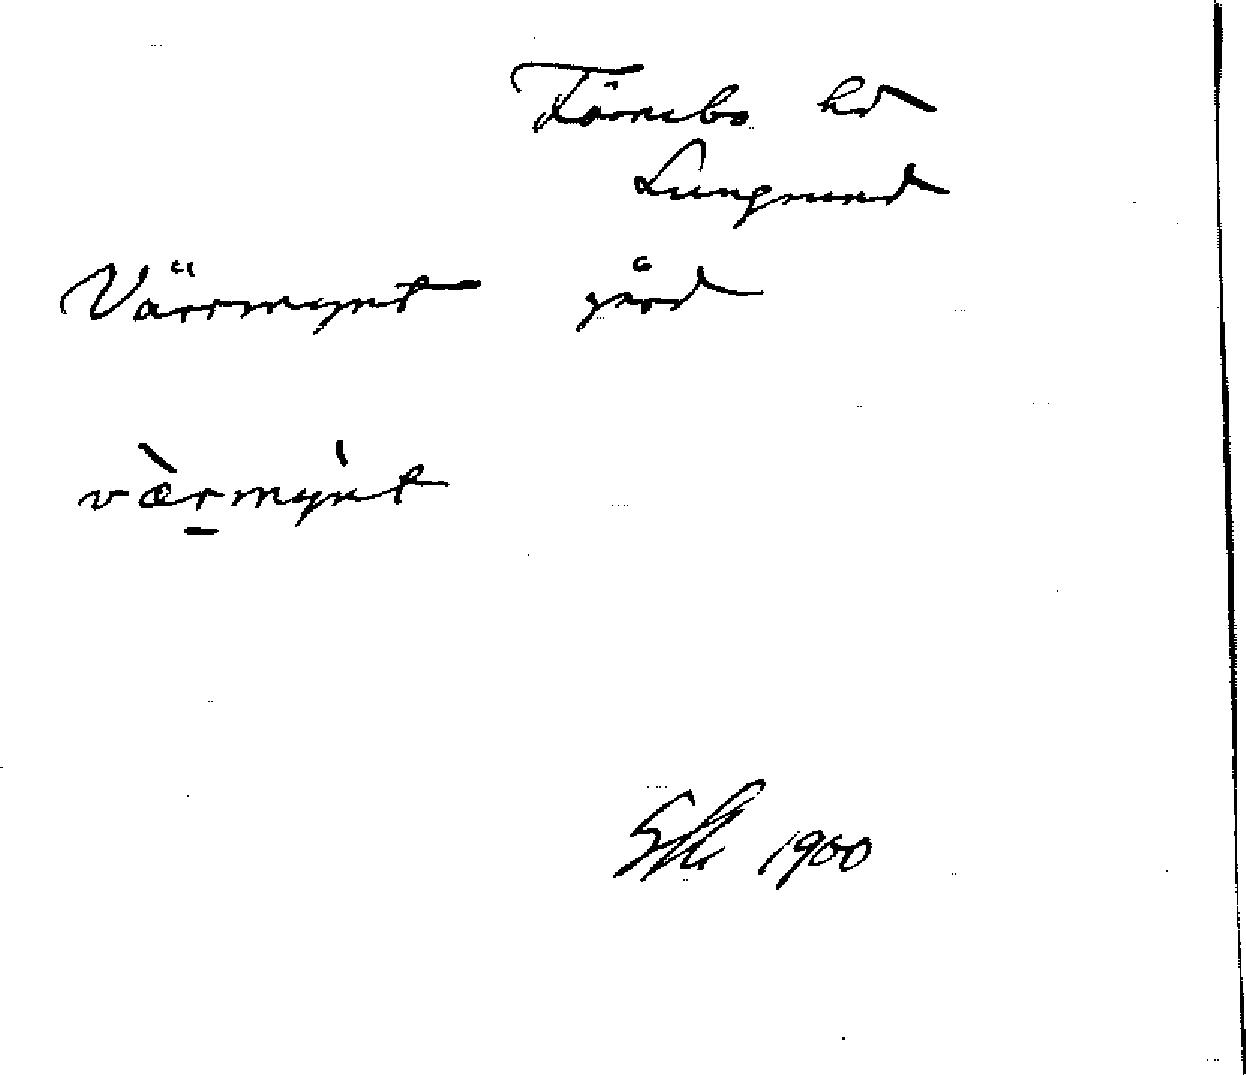 Färnebo hd
Lungsund
Värrmynt gård
värmynt
1900